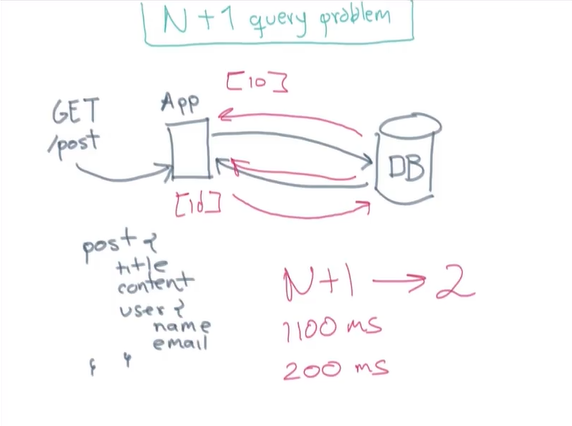 N+1 query problem
[10]
GET
/post
App
DB
[id]
post {
title
content
user {
name
email
}
}
N+1 → 2
1100 ms
200 ms